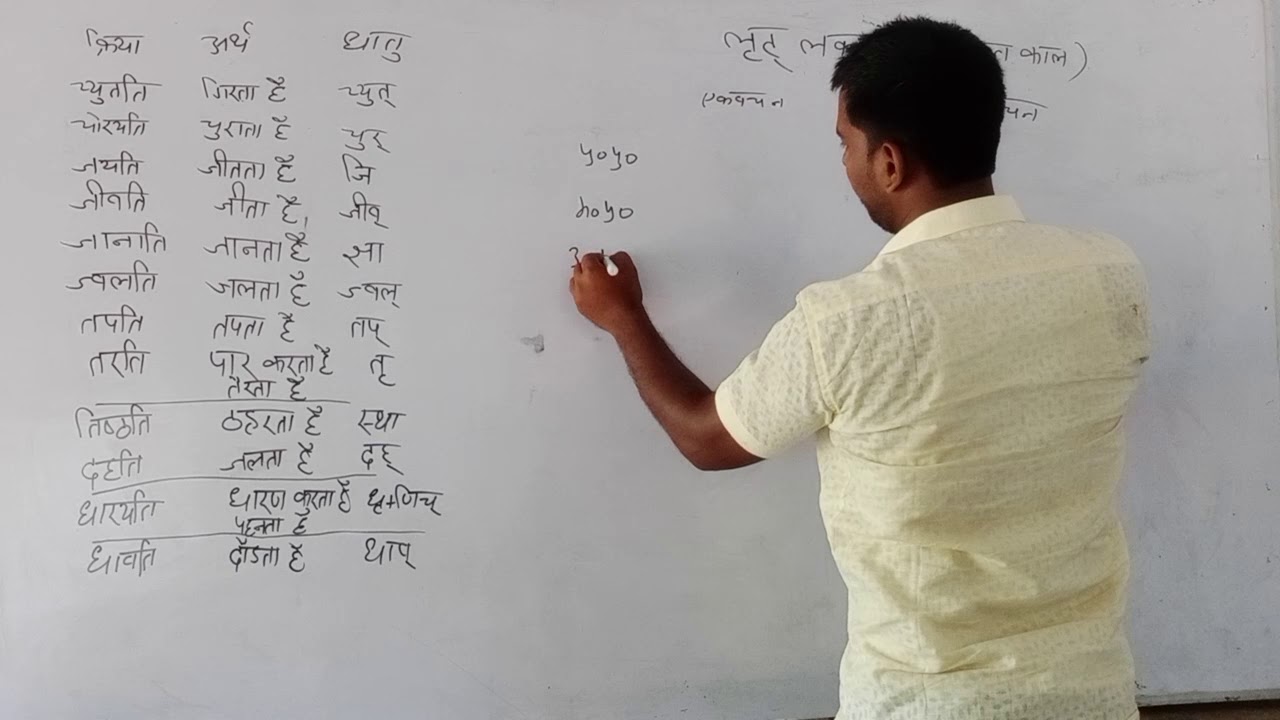 क्रिया अर्थ धातु
च्युतति गिरता है च्युत्
चोरयति चुराता है चुर्
जयति जीतता है जि
जीवति जीता है, जीव्
जानाति जानता है सा
ज्वलति जलता है ज्वल्
तपति तपता है तप्
तरति पार करता है तृ
तैरता है
तिष्ठति ठहरता है स्था
दहति जलता है दह्
धारयति धारण करता है धृ+णिच्
पहनता है
धावति दौडता है धाव्
लृट् काल)
एकवचन
प्र०पु०
म०पु०